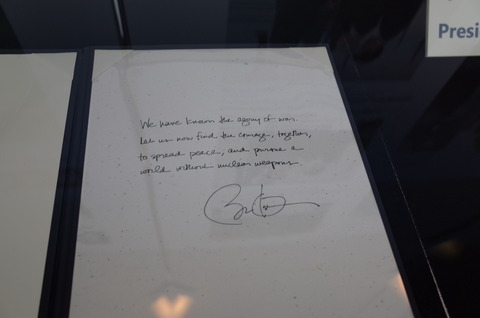 Presi
We have known the agony of war.
Let us now find the courage, together,
to spread peace, and pursue a
world without nuclear weapons.